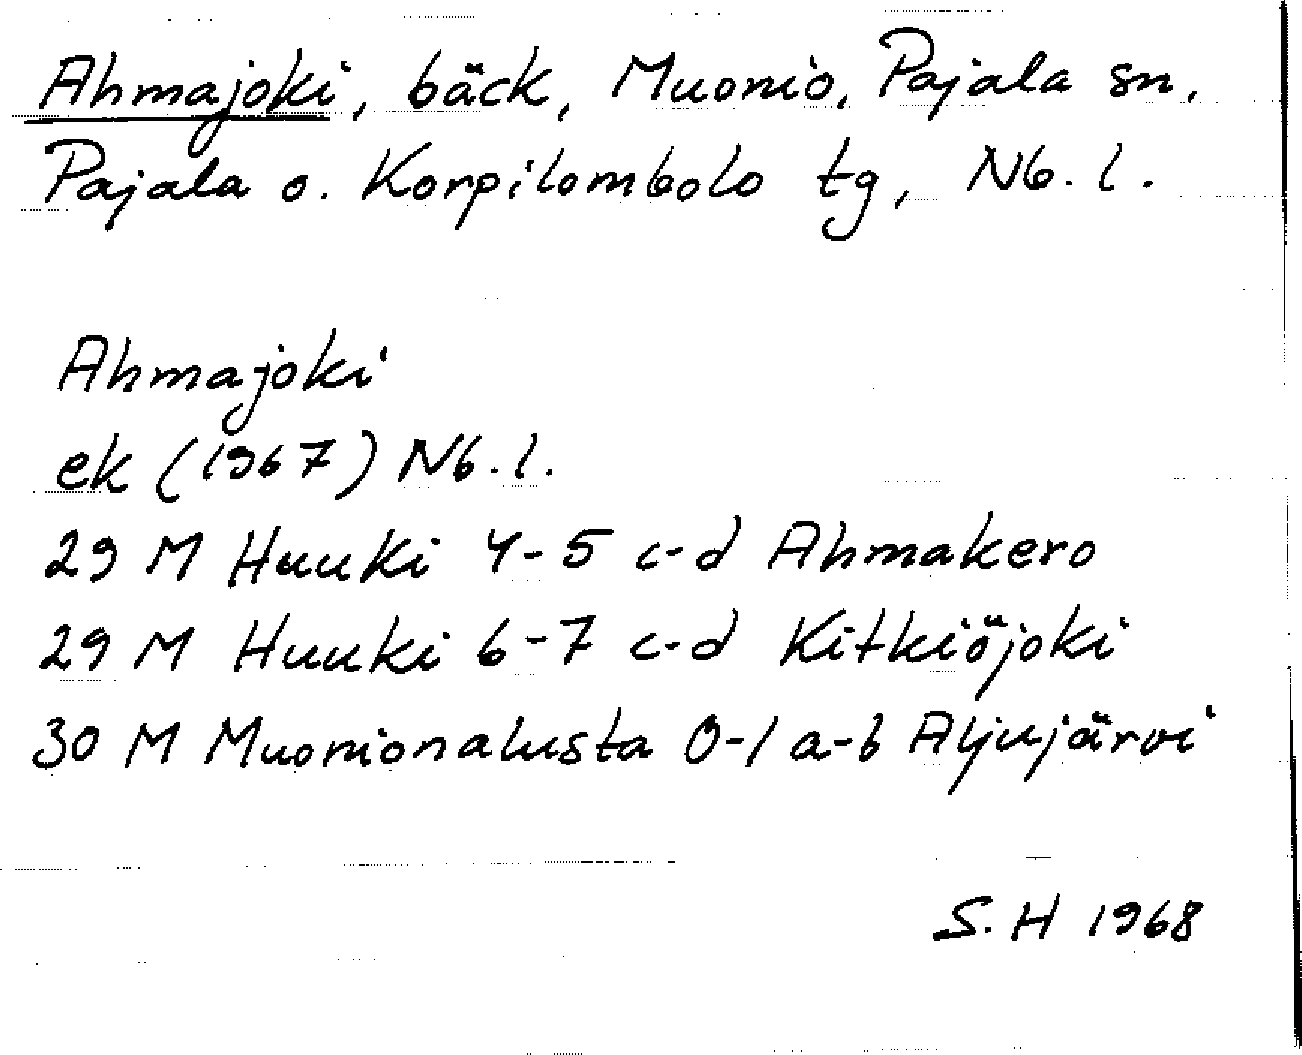 Ahmajoki, bäck, Muonio, Pajala sn,
Pajala o. Korpilombolo tg, Nb. l.
Ahmajoki
ek (1967) Nb. l.
29 M Huuki 4-5 c-d Ahmakero
29 M Huuki 6-7 c-d Kitkiöjoki
30 M Muonionalusta 0-1 a-b Aljujärvi
S. H 1968